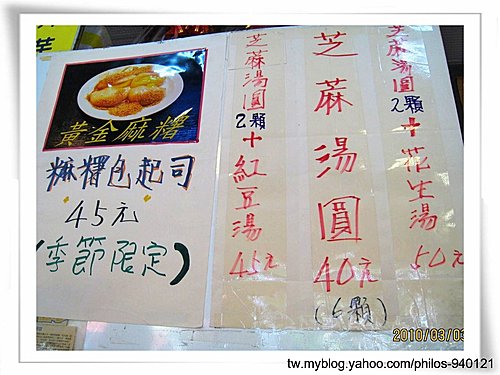 黃金麻糬
麻糬包起司
45元
(季節限定)
芝蔴湯圓2顆+紅豆湯45元
芝蔴湯圓40元
(6顆)
芝麻湯圓2顆+花生湯50元
2010/03/03
tw.myblog.yahoo.com/philos-940121